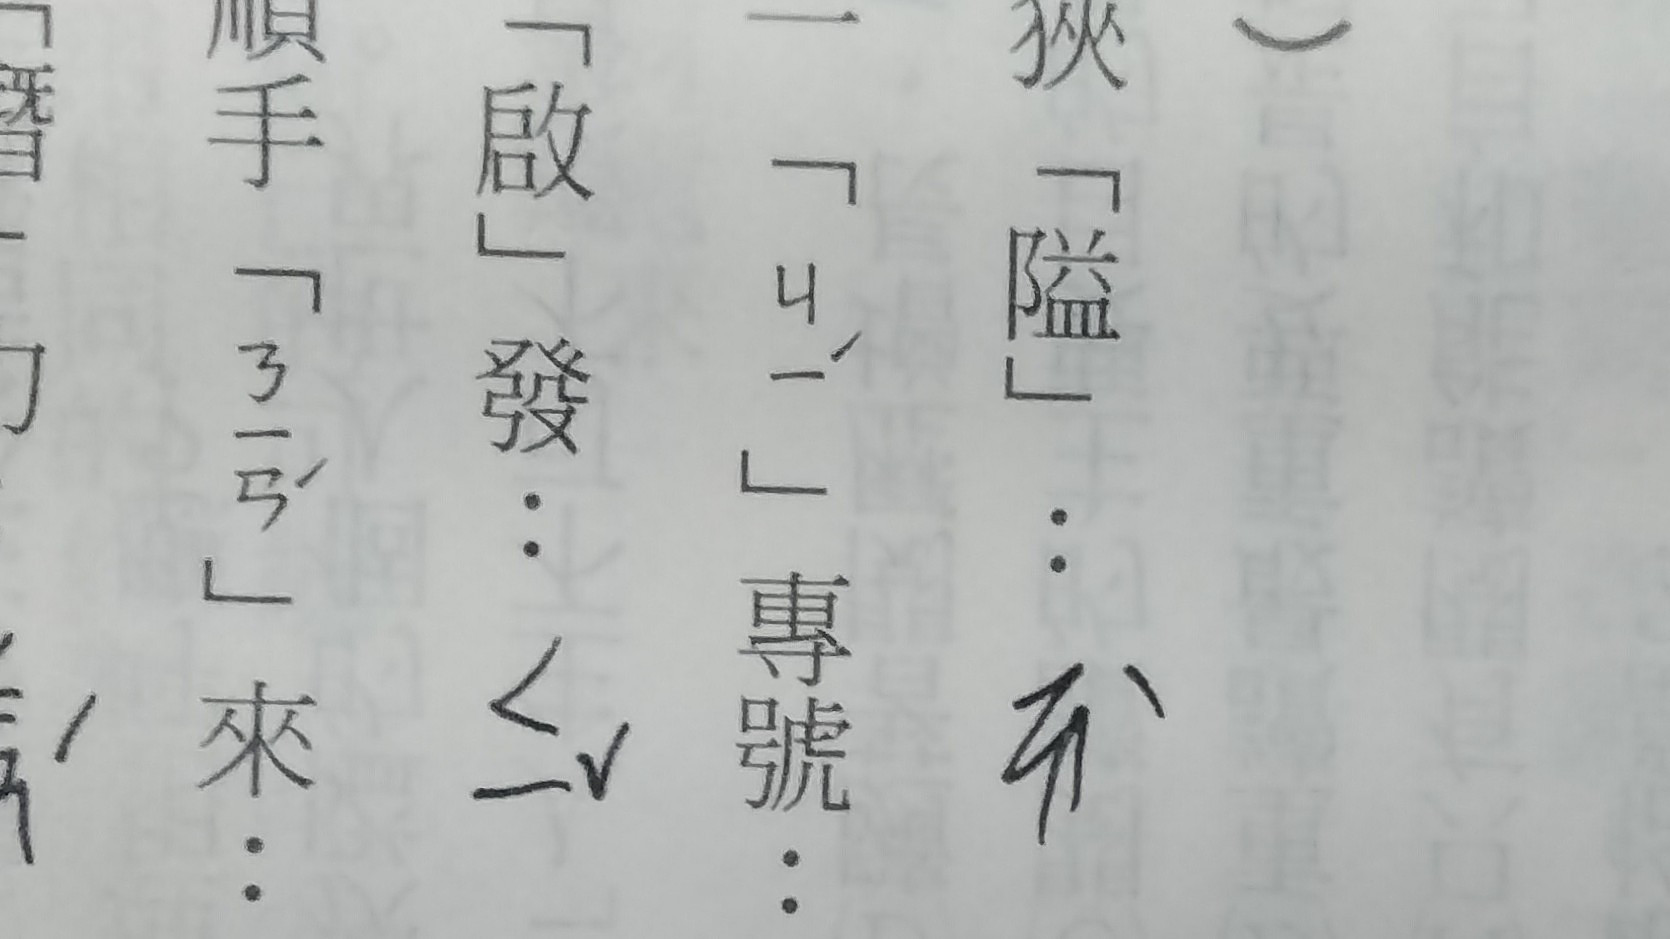 ）
狹「隘」：ㄞˋ
一「ㄐㄧˊ」專號：
「啟」發：ㄑㄧˇ
順手「ㄋㄧㄢˊ」來：